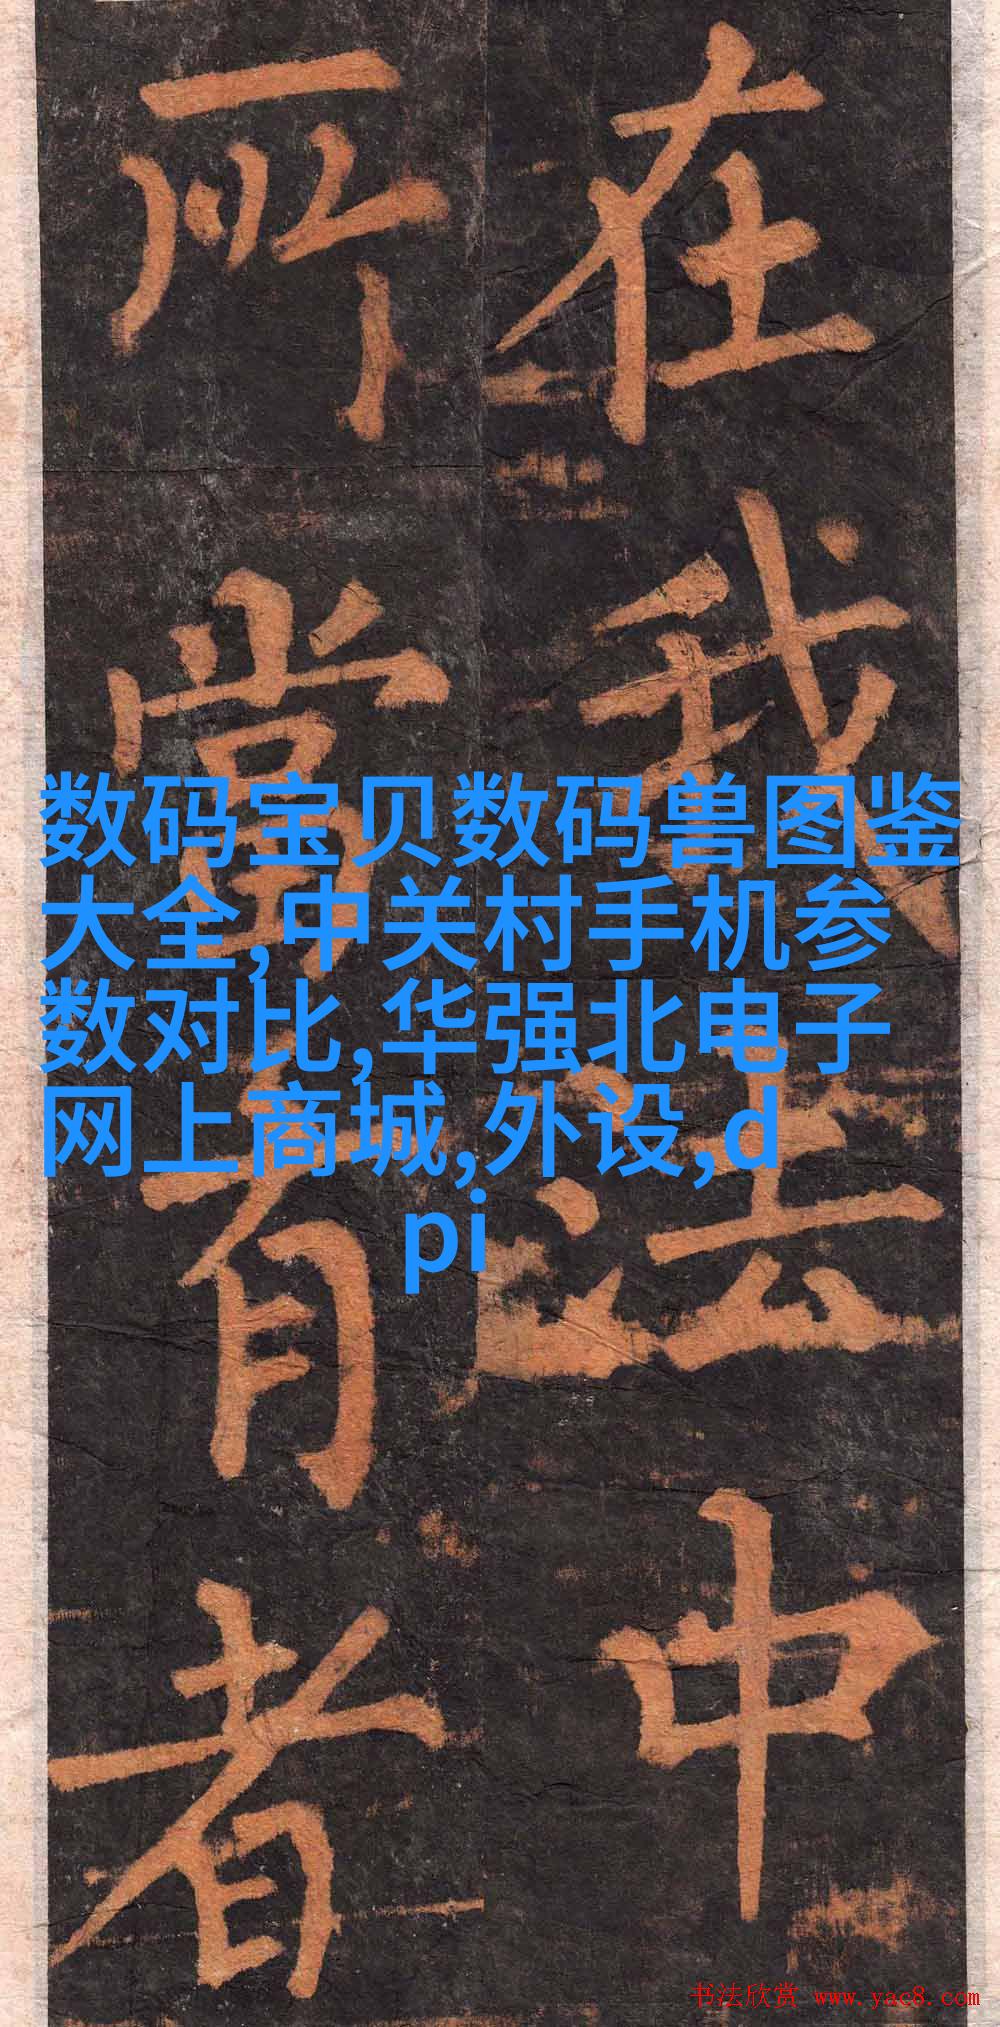 在我法中
所當有者
数码宝贝数码兽图鉴
大全,中关村手机参
数对比,华强北电子
网上商城,外设,d
pi
书法欣赏 www.yac8.com